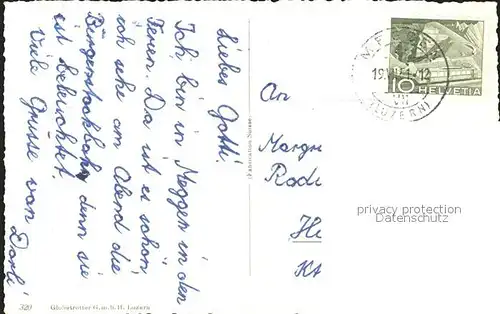 Liebes Gotti!
Ich bin in Meggen in den
Ferien. Da ist es schön,
ich sehe am Abend die
Bürgenstockbahn, denn sie
ist beleuchtet.
Viele Grüsse von
Dorli
An
Margr
Radi
H
HELVETIA
10
19.VII.51-12
(LUZERN)
privacy protection
Datenschutz
320 Globetrotter G.m.b.H. Luzern